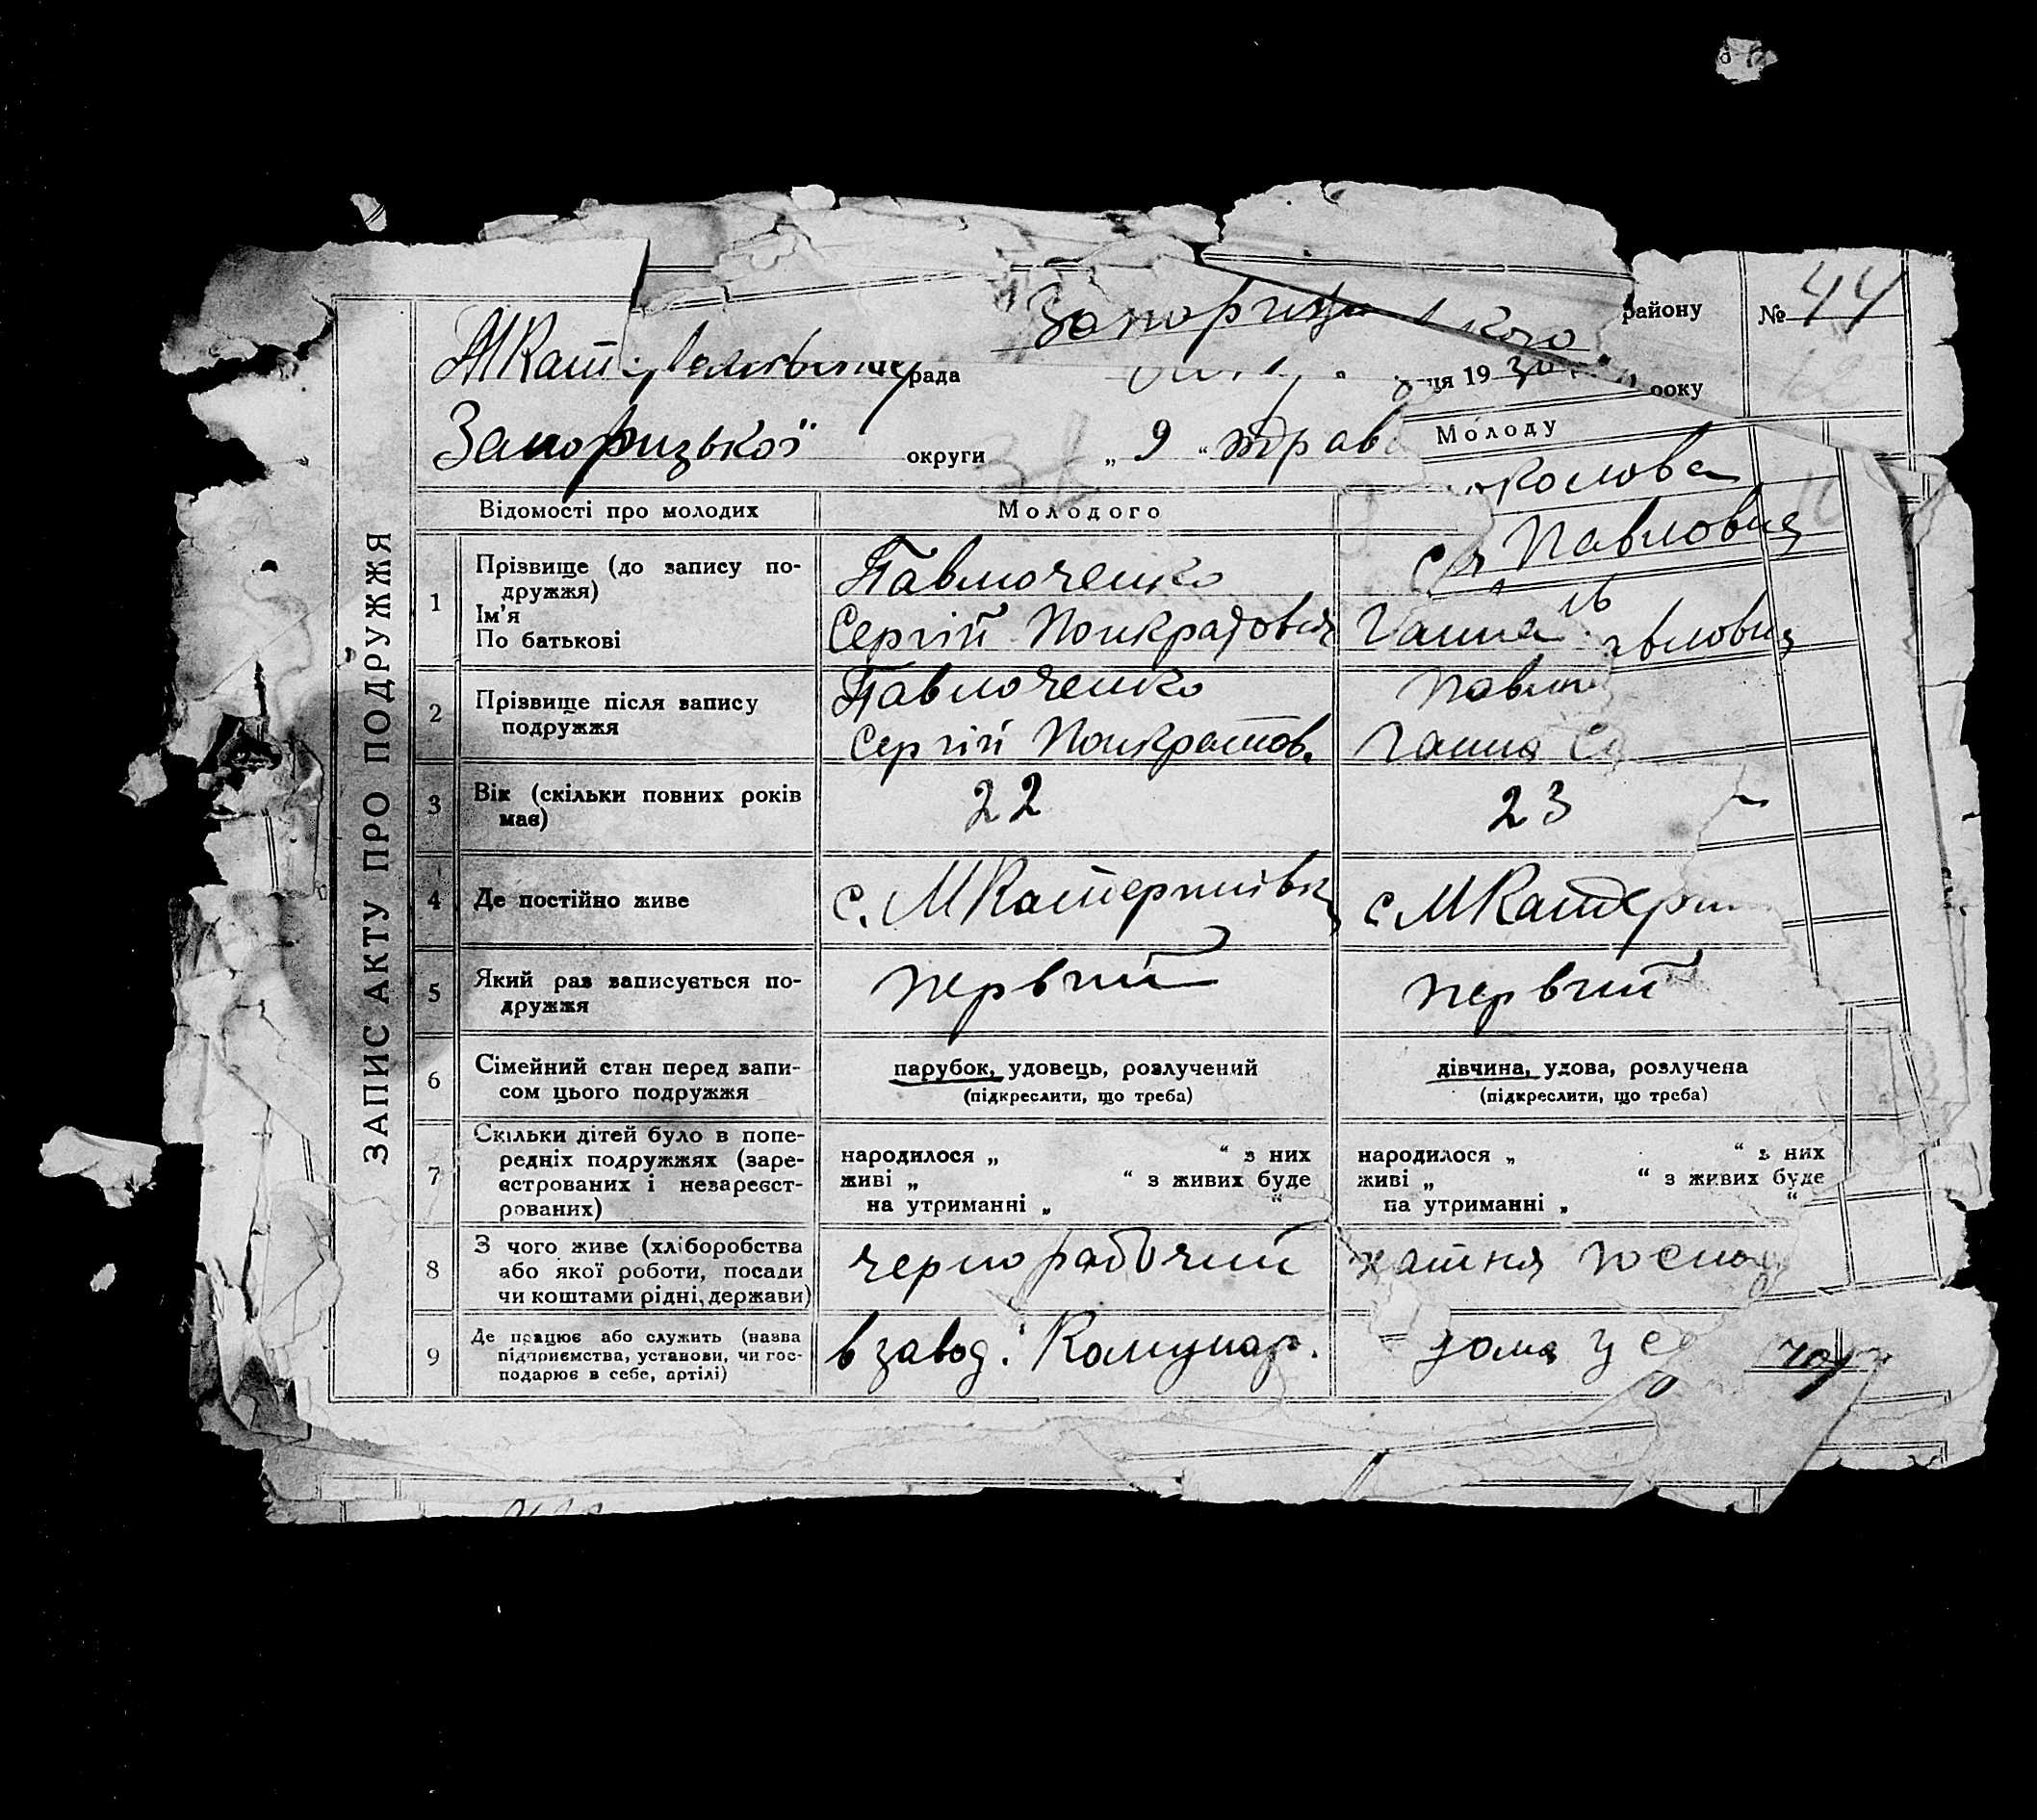 ЗАПИС АКТУ ПРО ПОДРУЖЖЯ
району № 44
рада
ця 19 30 року
Запоризької округи „ 9 “
Відомості про молодих Молодого Молоду
1 Прізвище (до запису по-
дружжя)
Ім'я
По батькові
Павлюченко
Сергій Понкратович Ганна
2 Прізвище після запису
подружжя
Павлюченко
Сергій Понкратов. Ганна
3 Вік (скільки повних років
має)
22 23
4 Де постійно живе с. МКатеринівка с МКатерин
5 Який раз записується по-
дружжя
первий первий
6 Сімейний стан перед запи-
сом цього подружжя
парубок, удовець, розлучений
(підкреслити, що треба)
дівчина, удова, розлучена
(підкреслити, що треба)
7 Скільки дітей було в попе-
редніх подружжях (заре-
єстрованих і незареєст-
рованих)
народилося „ “ з них
живі „ “ з живих буде
на утриманні „ “
народилося „ “ з них
живі „ “ з живих буде
на утриманні „ “
8 З чого живе (хліборобства
або якої роботи, посади
чи коштами рідні, держави)
чернорабочий хатня
9 Де працює або служить (назва
підприємства, установи, чи гос-
подарює в себе, артілі)
в завод. Комунар. дома у